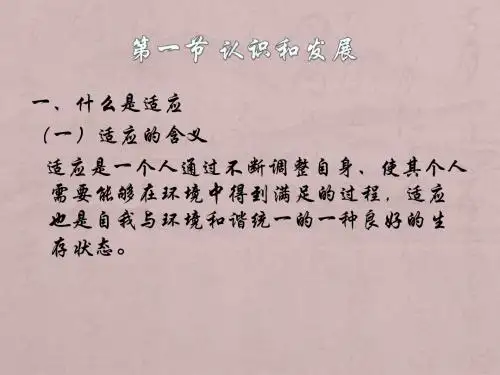 第一节 认识和发展
一、什么是适应
（一）适应的含义
适应是一个人通过不断调整自身、使其个人
需要能够在环境中得到满足的过程，适应
也是自我与环境和谐统一的一种良好的生
存状态。